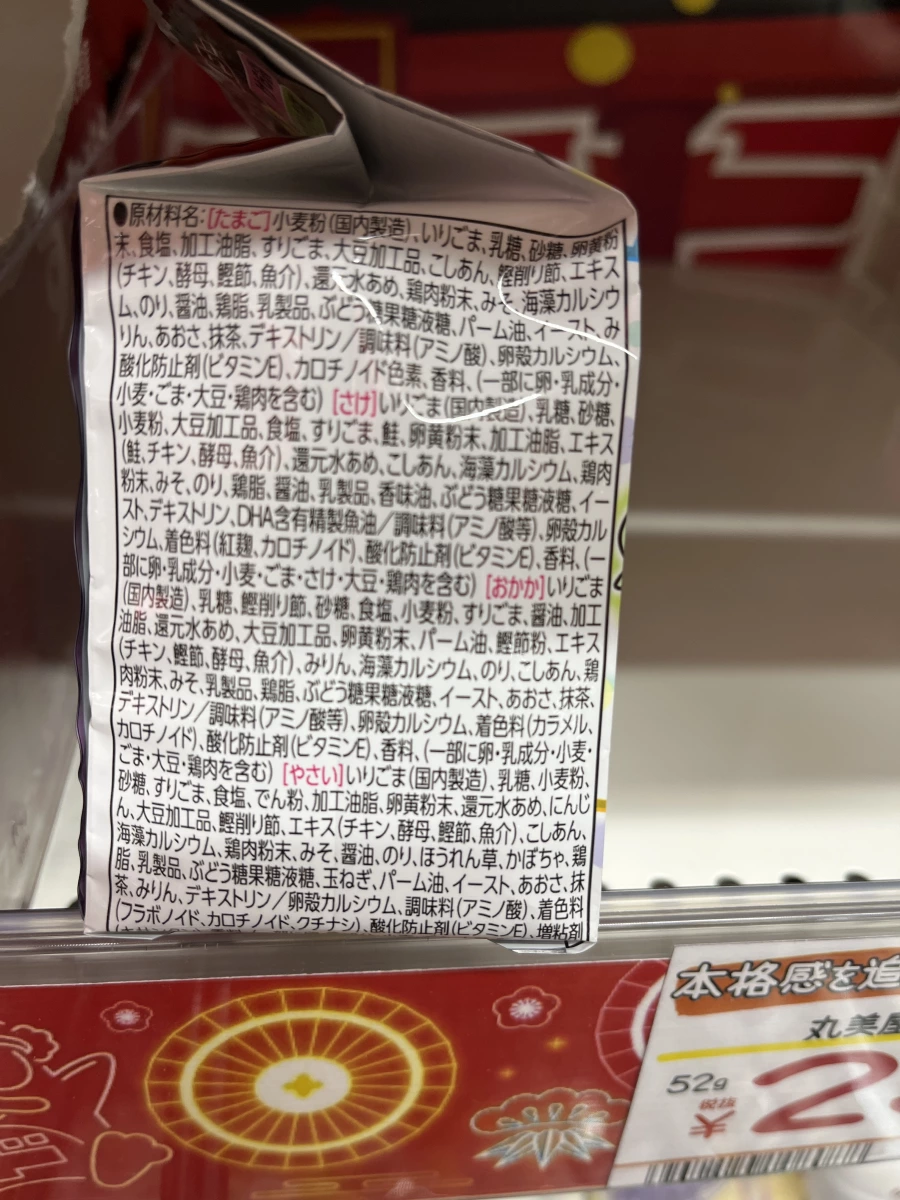 ●原材料名：[たまご]小麦粉(国内製造)、いりごま、乳糖、砂糖、卵黄粉
末、食塩、加工油脂、すりごま、大豆加工品、こしあん、鰹削り節、エキス
(チキン、酵母、鰹節、魚介)、還元水あめ、鶏肉粉末、みそ、海藻カルシウ
ム、のり、醤油、鶏脂、乳製品、ぶどう糖果糖液糖、パーム油、イースト、み
りん、あおさ、抹茶、デキストリン／調味料(アミノ酸)、卵殻カルシウム、
酸化防止剤(ビタミンE)、カロチノイド色素、香料、(一部に卵・乳成分・
小麦・ごま・大豆・鶏肉を含む) [さけ]いりごま(国内製造)、乳糖、砂糖、
小麦粉、大豆加工品、食塩、すりごま、鮭、卵黄粉末、加工油脂、エキス
(鮭、チキン、酵母、魚介)、還元水あめ、こしあん、海藻カルシウム、鶏肉
粉末、みそ、のり、鶏脂、醤油、乳製品、香味油、ぶどう糖果糖液糖、イー
スト、デキストリン、DHA含有精製魚油／調味料(アミノ酸等)、卵殻カル
シウム、着色料(紅麹、カロチノイド)、酸化防止剤(ビタミンE)、香料、(一
部に卵・乳成分・小麦・ごま・さけ・大豆・鶏肉を含む) [おかか]いりごま
(国内製造)、乳糖、鰹削り節、砂糖、食塩、小麦粉、すりごま、醤油、加工
油脂、還元水あめ、大豆加工品、卵黄粉末、パーム油、鰹節粉、エキス
(チキン、鰹節、酵母、魚介)、みりん、海藻カルシウム、のり、こしあん、鶏
肉粉末、みそ、乳製品、鶏脂、ぶどう糖果糖液糖、イースト、あおさ、抹茶、
デキストリン／調味料(アミノ酸等)、卵殻カルシウム、着色料(カラメル、
カロチノイド)、酸化防止剤(ビタミンE)、香料、(一部に卵・乳成分・小麦・
ごま・大豆・鶏肉を含む) [やさい]いりごま(国内製造)、乳糖、小麦粉、
砂糖、すりごま、食塩、でん粉、加工油脂、卵黄粉末、還元水あめ、にんじ
ん、大豆加工品、鰹削り節、エキス(チキン、酵母、鰹節、魚介)、こしあん、
海藻カルシウム、鶏肉粉末、みそ、醤油、のり、ほうれん草、かぼちゃ、鶏
脂、乳製品、ぶどう糖果糖液糖、玉ねぎ、パーム油、イースト、あおさ、抹
茶、みりん、デキストリン／卵殻カルシウム、調味料(アミノ酸)、着色料
(フラボノイド、カロチノイド、クチナシ)、酸化防止剤(ビタミンE)、増粘剤
本格感を追
丸美屋
52g
2